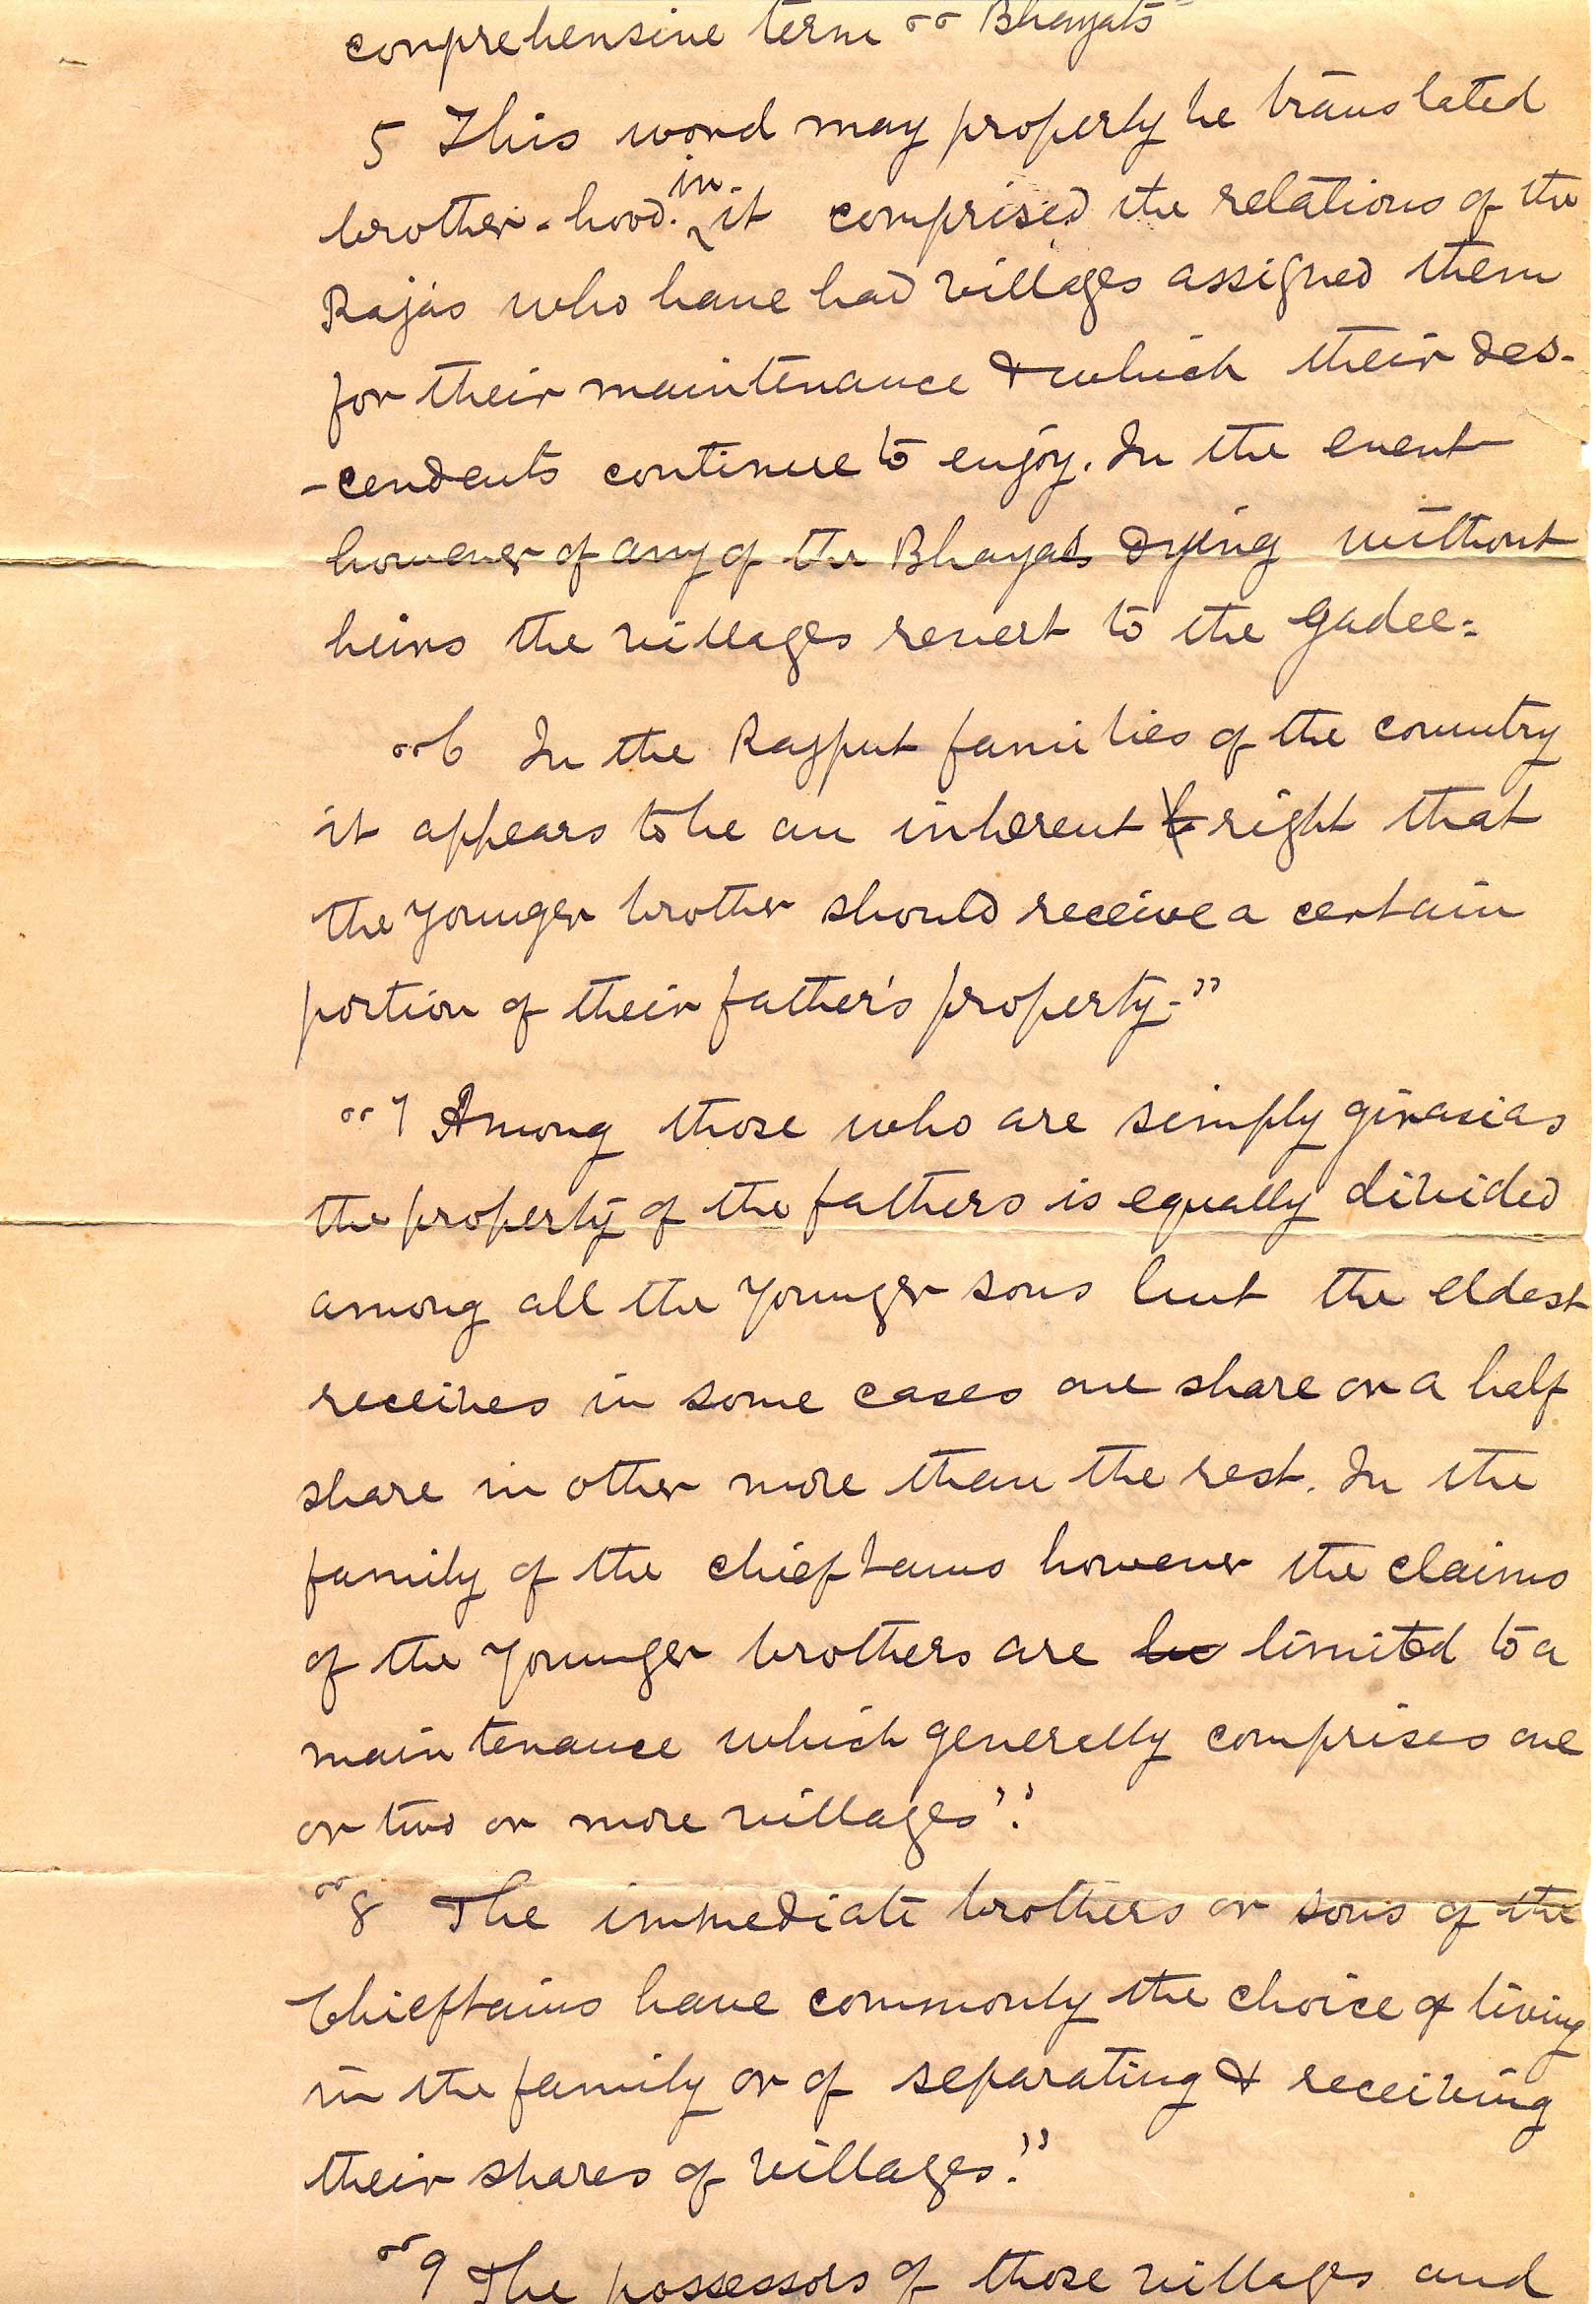 comprehensive term "Bhayats"
5 This word may properly be translated
brother-hood. in it comprised the relations of the
Rajas who have had villages assigned them
for their maintenance & which their des-
-cendents continue to enjoy. In the event
however of any of the Bhayats dying without
heirs the villages revert to the gadee.
"6 In the Rajput families of the country
it appears to be an inherent right that
the younger brother should receive a certain
portion of their father's property."
"7 Among those who are simply girasias
the property of the fathers is equally divided
among all the younger sons but the eldest
receives in some cases one share or a half
share in other more than the rest. In the
family of the chieftains however the claims
of the younger brothers are limited to a
maintenance which generally comprises one
or two or more villages".
"8 The immediate brothers or sons of the
Chieftains have commonly the choice of living
in the family or of separating & receiving
their shares of villages."
"9 The possessors of those villages and